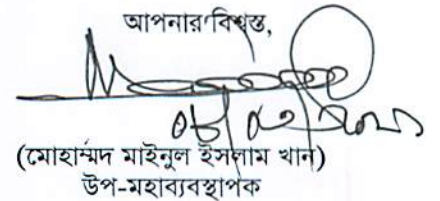 আপনার বিশ্বস্ত,
(মোহাম্মদ মাইনুল ইসলাম খান)
উপ-মহাব্যবস্থাপক